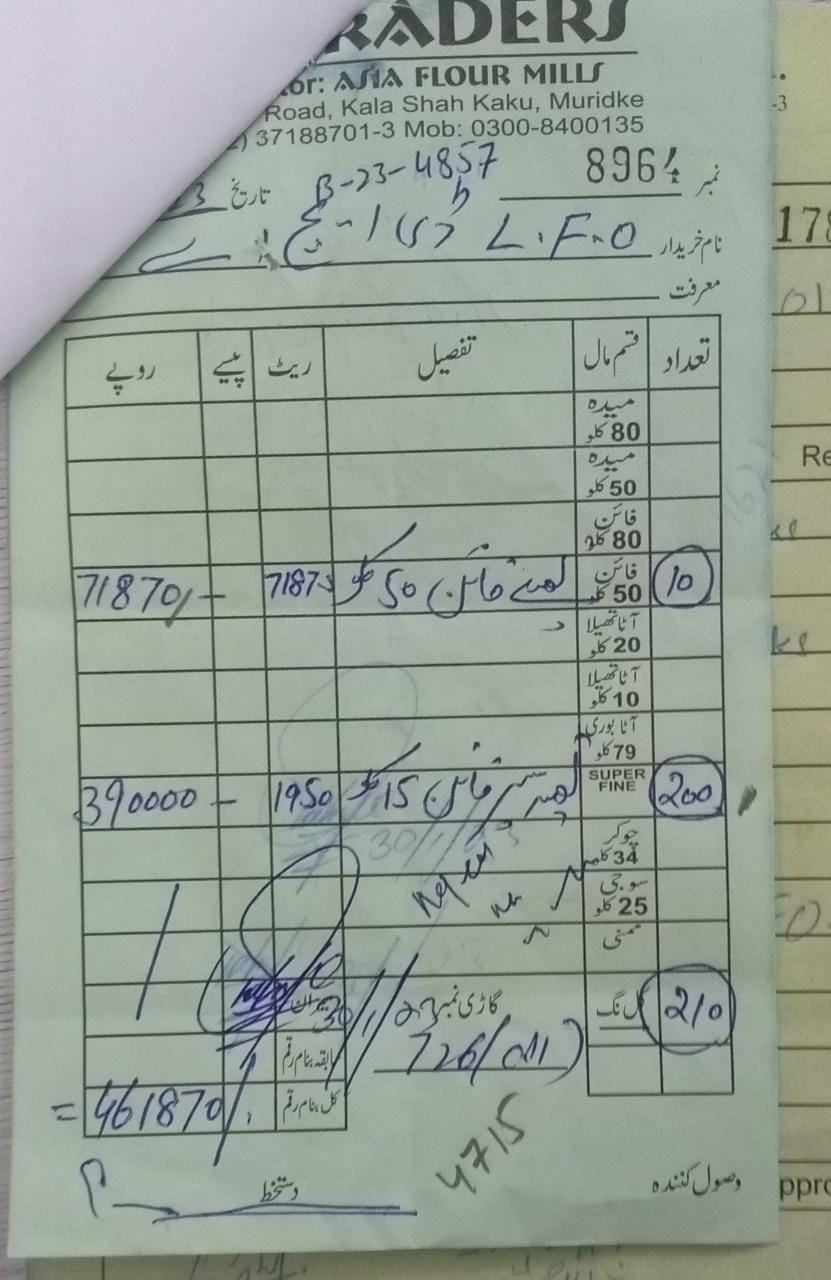 RADERS
tor: ASIA FLOUR MILLS
Road, Kala Shah Kaku, Muridke
) 37188701-3 Mob: 0300-8400135
نمبر 8964
B-23-4857
تاریخ
نام خریدار L.F.O
معرفت
تعداد قسم مال تفصیل ریٹ پیسے روپے
میدہ 80 کلو
میدہ 50 کلو
فائن 80 کلو
10 فائن 50 کلو فائن 50 کلو 7187 71870/-
آٹا تھیلا 20 کلو
آٹا تھیلا 10 کلو
آٹا بوری 79 کلو
200 SUPER FINE سپر فائن 15 کلو 1950 390000 -
چوکر 34 کلو
سوجی 25 کلو
ممنی
210 نگ گاڑی نمبر
30/1/23
726
سابقہ بنام رقم
کل بنام رقم = 461870/
4715
وصول کنندہ دستخط
178
Re